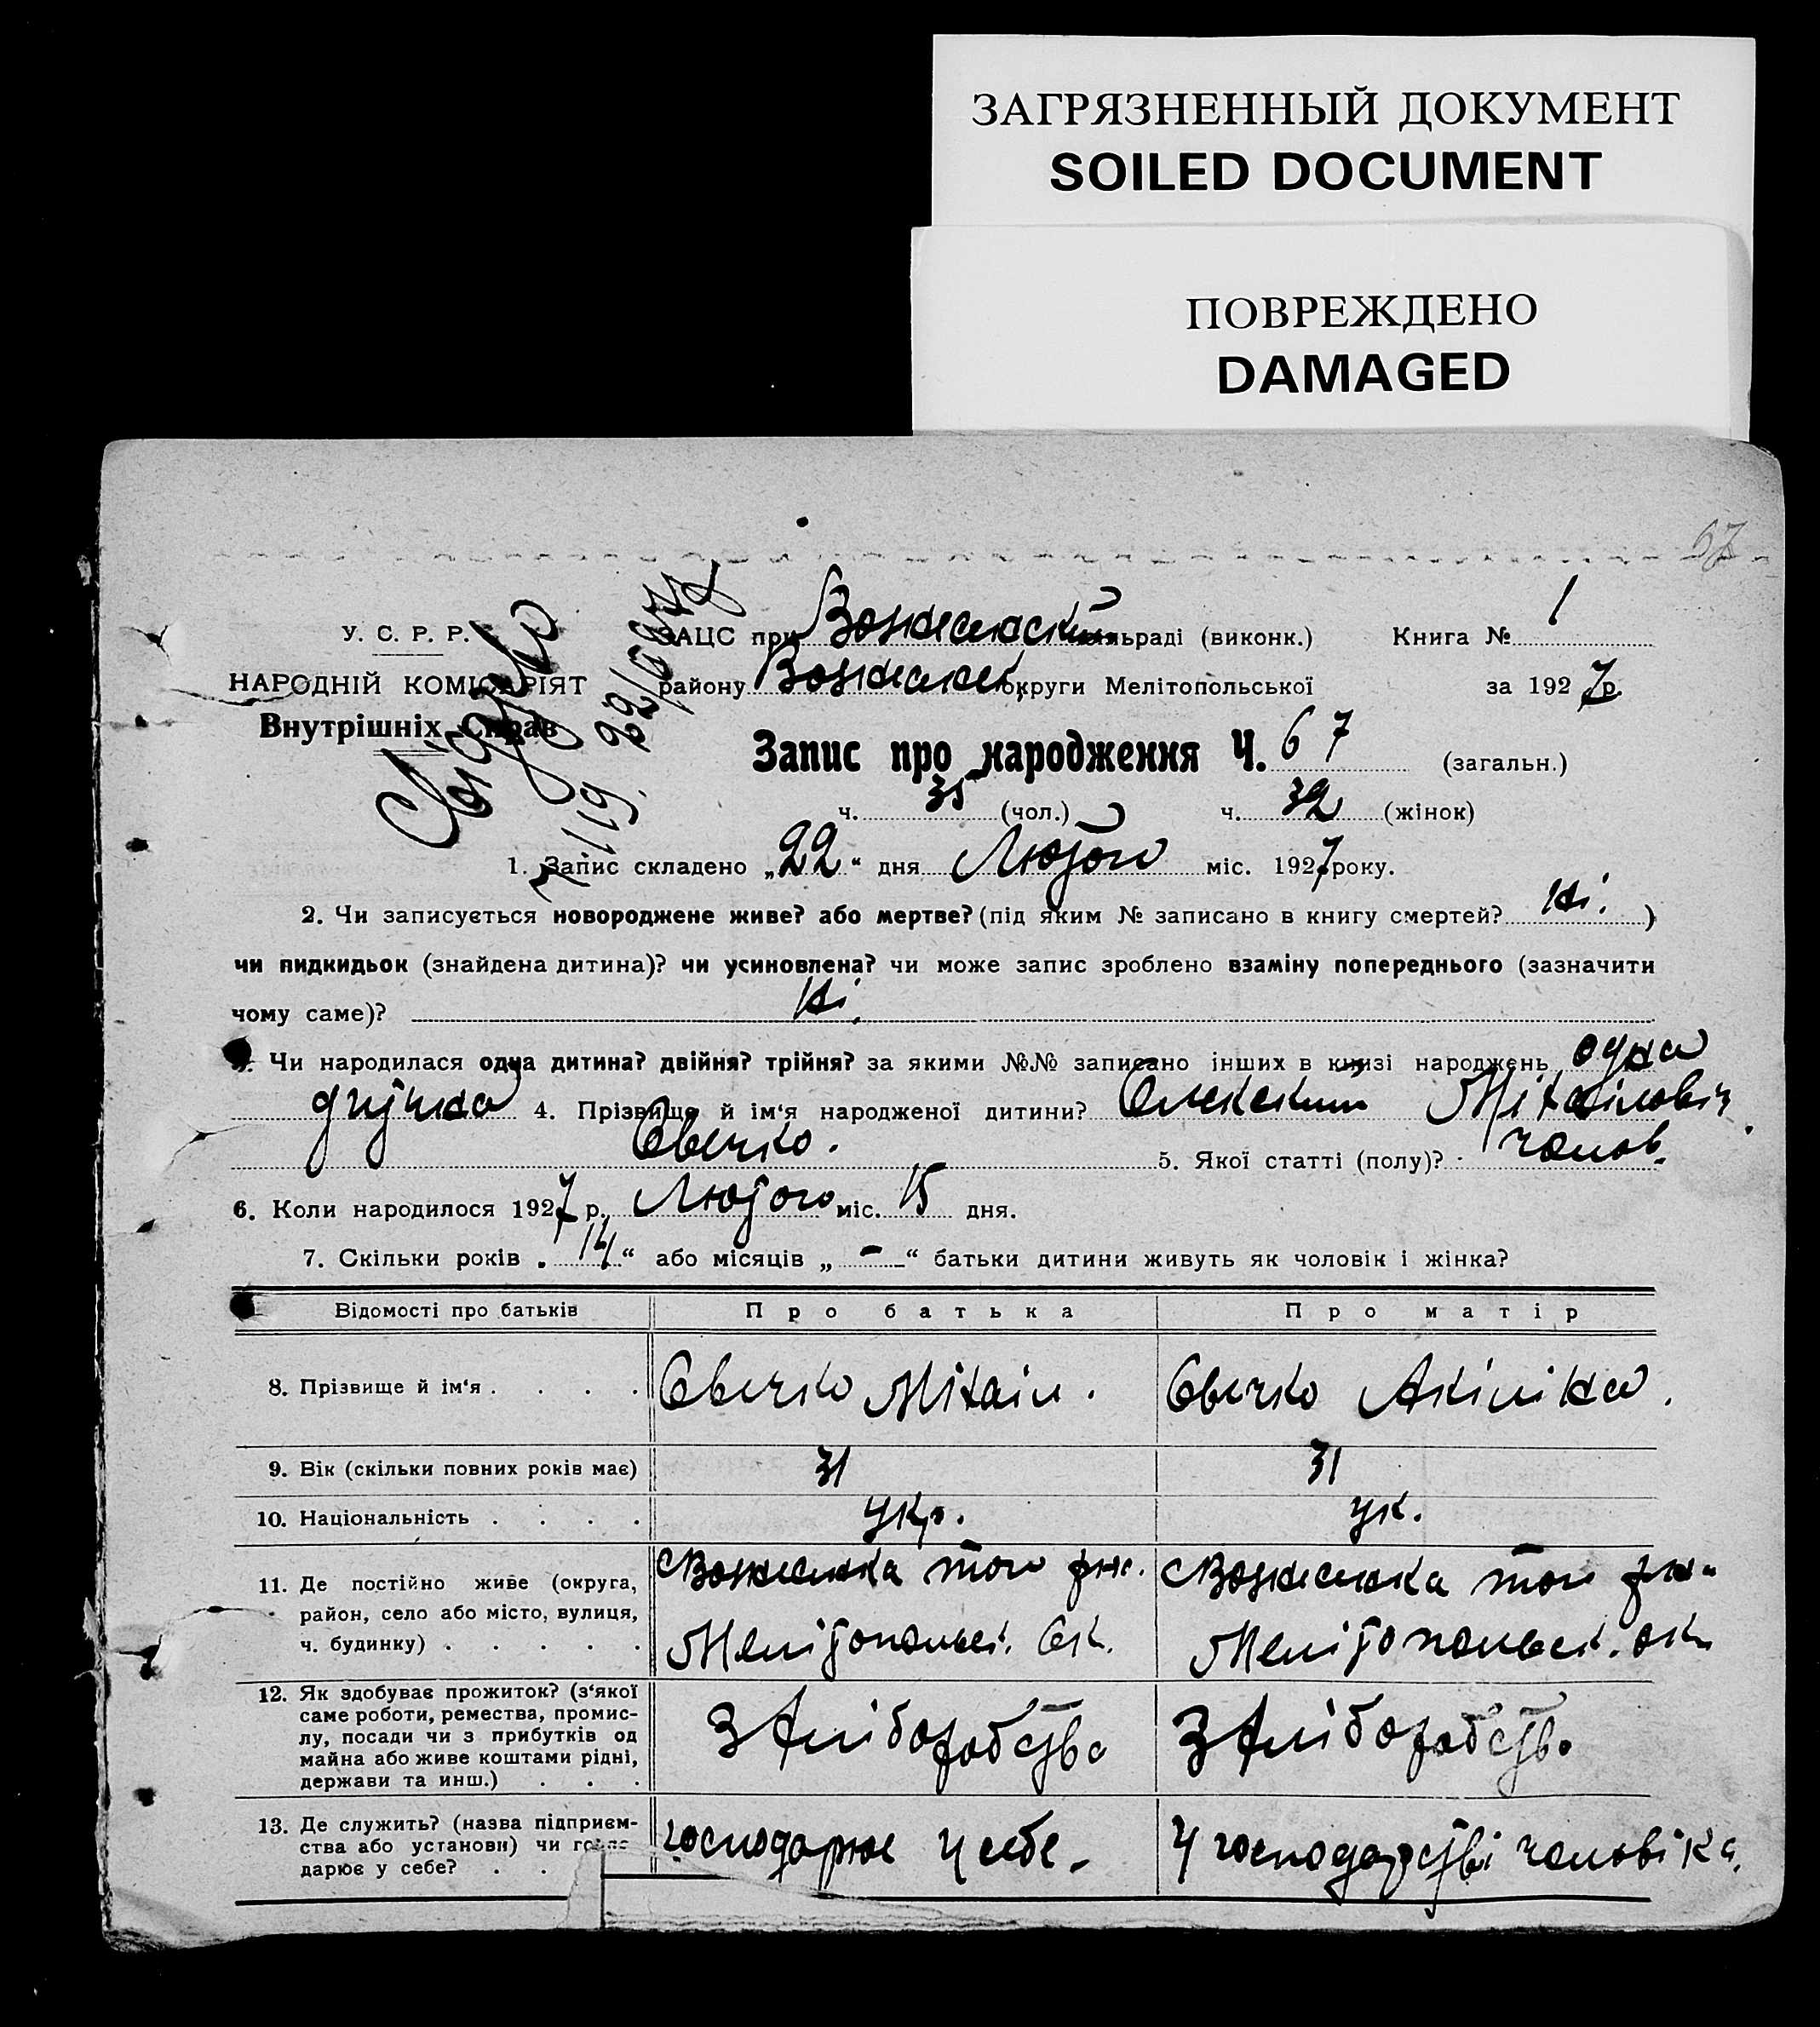 ЗАГРЯЗНЕННЫЙ ДОКУМЕНТ
SOILED DOCUMENT
ПОВРЕЖДЕНО
DAMAGED
67
У. С. Р. Р.
НАРОДНІЙ КОМІСАРІЯТ
Внутрішніх Справ
ЗАЦС при льраді (виконк.) Книга № 1
району округи Мелітопольської за 1927 р.
Запис про народження Ч. 67 (загальн.)
ч. 35 (чол.) ч. 32 (жінок)
1. Запис складено „22“ дня Лютого міс. 1927 року.
2. Чи записується новороджене живе? або мертве? (під яким № записано в книгу смертей? Ні. )
чи пидкидьок (знайдена дитина)? чи усиновлена? чи може запис зроблено взаміну попереднього (зазначити
чому саме)? Ні.
Чи народилася одна дитина? двійня? трійня? за якими №№ записано інших в книзі народжень одна
дитина 4. Прізвище й ім'я народженої дитини? Олексій Міхаілович
Овечко. 5. Якої статті (полу)? чолов.
6. Коли народилося 1927 р. Лютого міс. 15 дня.
7. Скільки років „14“ або місяців „ – “ батьки дитини живуть як чоловік і жінка?
Відомості про батьків Про батька Про матір
8. Прізвище й ім'я . . . . Овечко Міхаіл. Овечко Акіліна.
9. Вік (скільки повних років має) 31 31
10. Національність . . . . укр. ук.
11. Де постійно живе (округа,
район, село або місто, вулиця,
ч. будинку) . . . . .
Мелітопольск. Ок. Мелітопольск. ок.
12. Як здобуває прожиток? (з'якої
саме роботи, ремества, промис-
лу, посади чи з прибутків од
майна або живе коштами рідні,
держави та инш.) . . .
З Хліборобства З Хліборобств.
13. Де служить? (назва підприєм-
ства або установи) чи госпо-
дарює у себе? . .
господарює у себе. У господарстві чоловіка.